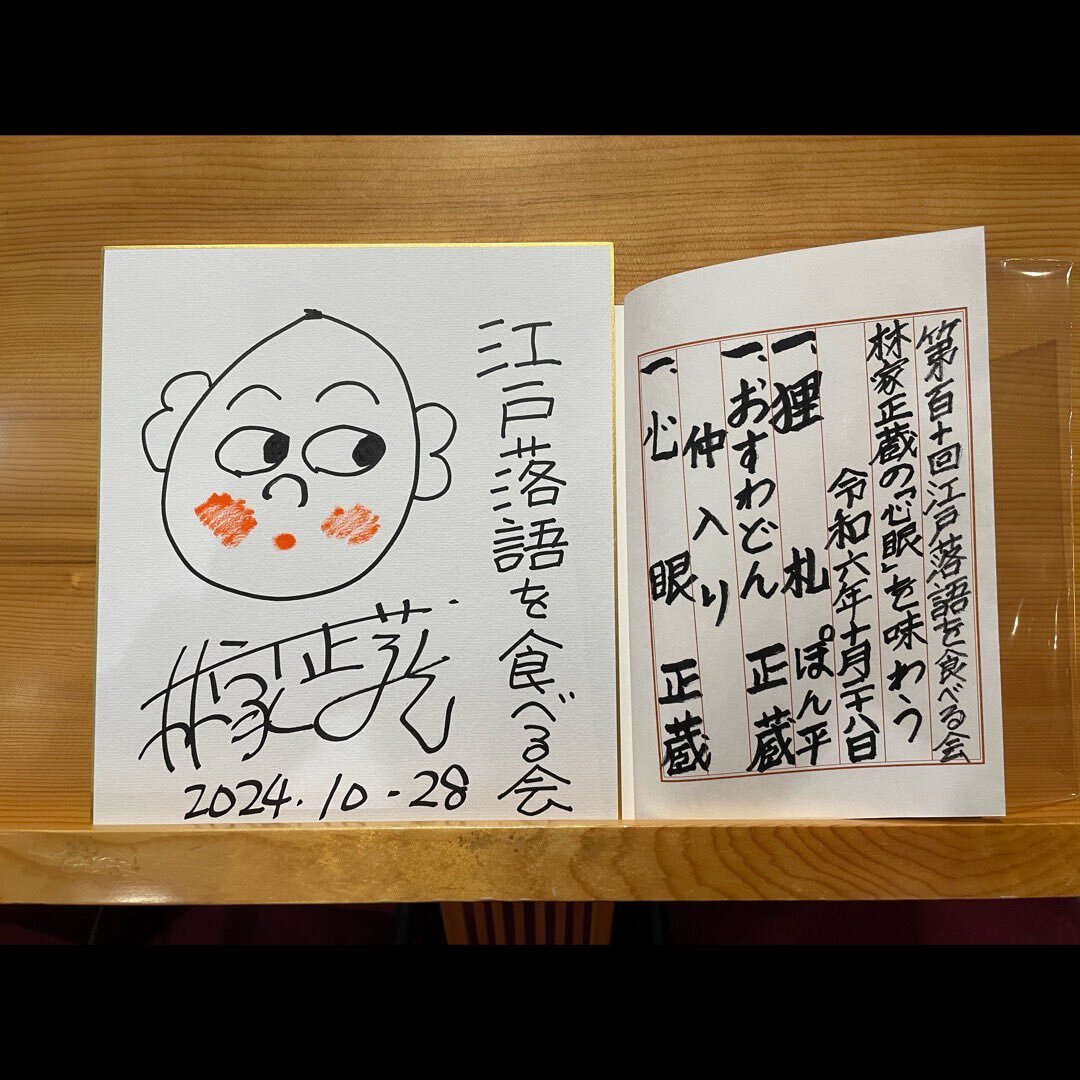 江戸落語を食べる会
林家正蔵
2024.10-28
第百十回江戸落語を食べる会
林家正蔵の「心眼」を味わう
令和六年十月二十八日
一、狸札 ぽん平
一、おすわどん 正蔵
仲入り
一、心眼 正蔵